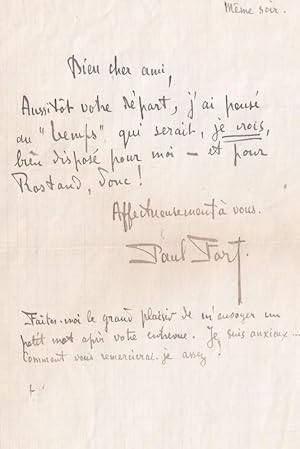 Même soir.
Bien cher ami,
Aussitôt votre départ, j'ai pensé
au "Temps" qui serait, je crois,
bien disposé pour moi — et pour
Rostand, donc !
Affectueusement à vous.
Paul Fort.
Faites-moi le grand plaisir de m'envoyer un
petit mot après votre entrevue. Je suis anxieux...
Comment vous remercierai-je assez !